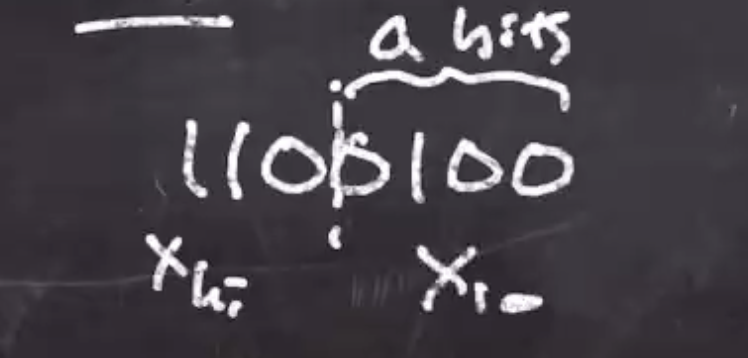 a bits
1100100
Xhi Xlo